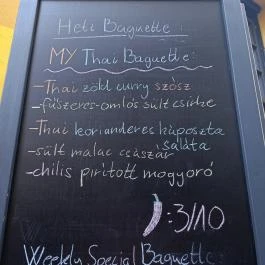 Heti Baguette:
MY Thai Baguette:
-Thai zöld curry szósz
-fűszeres-omlós sült csirke
-Thai korianderes káposzta saláta
-sült malac császár
-chilis pirított mogyoró
:3/10
Weekly Special Baguette: